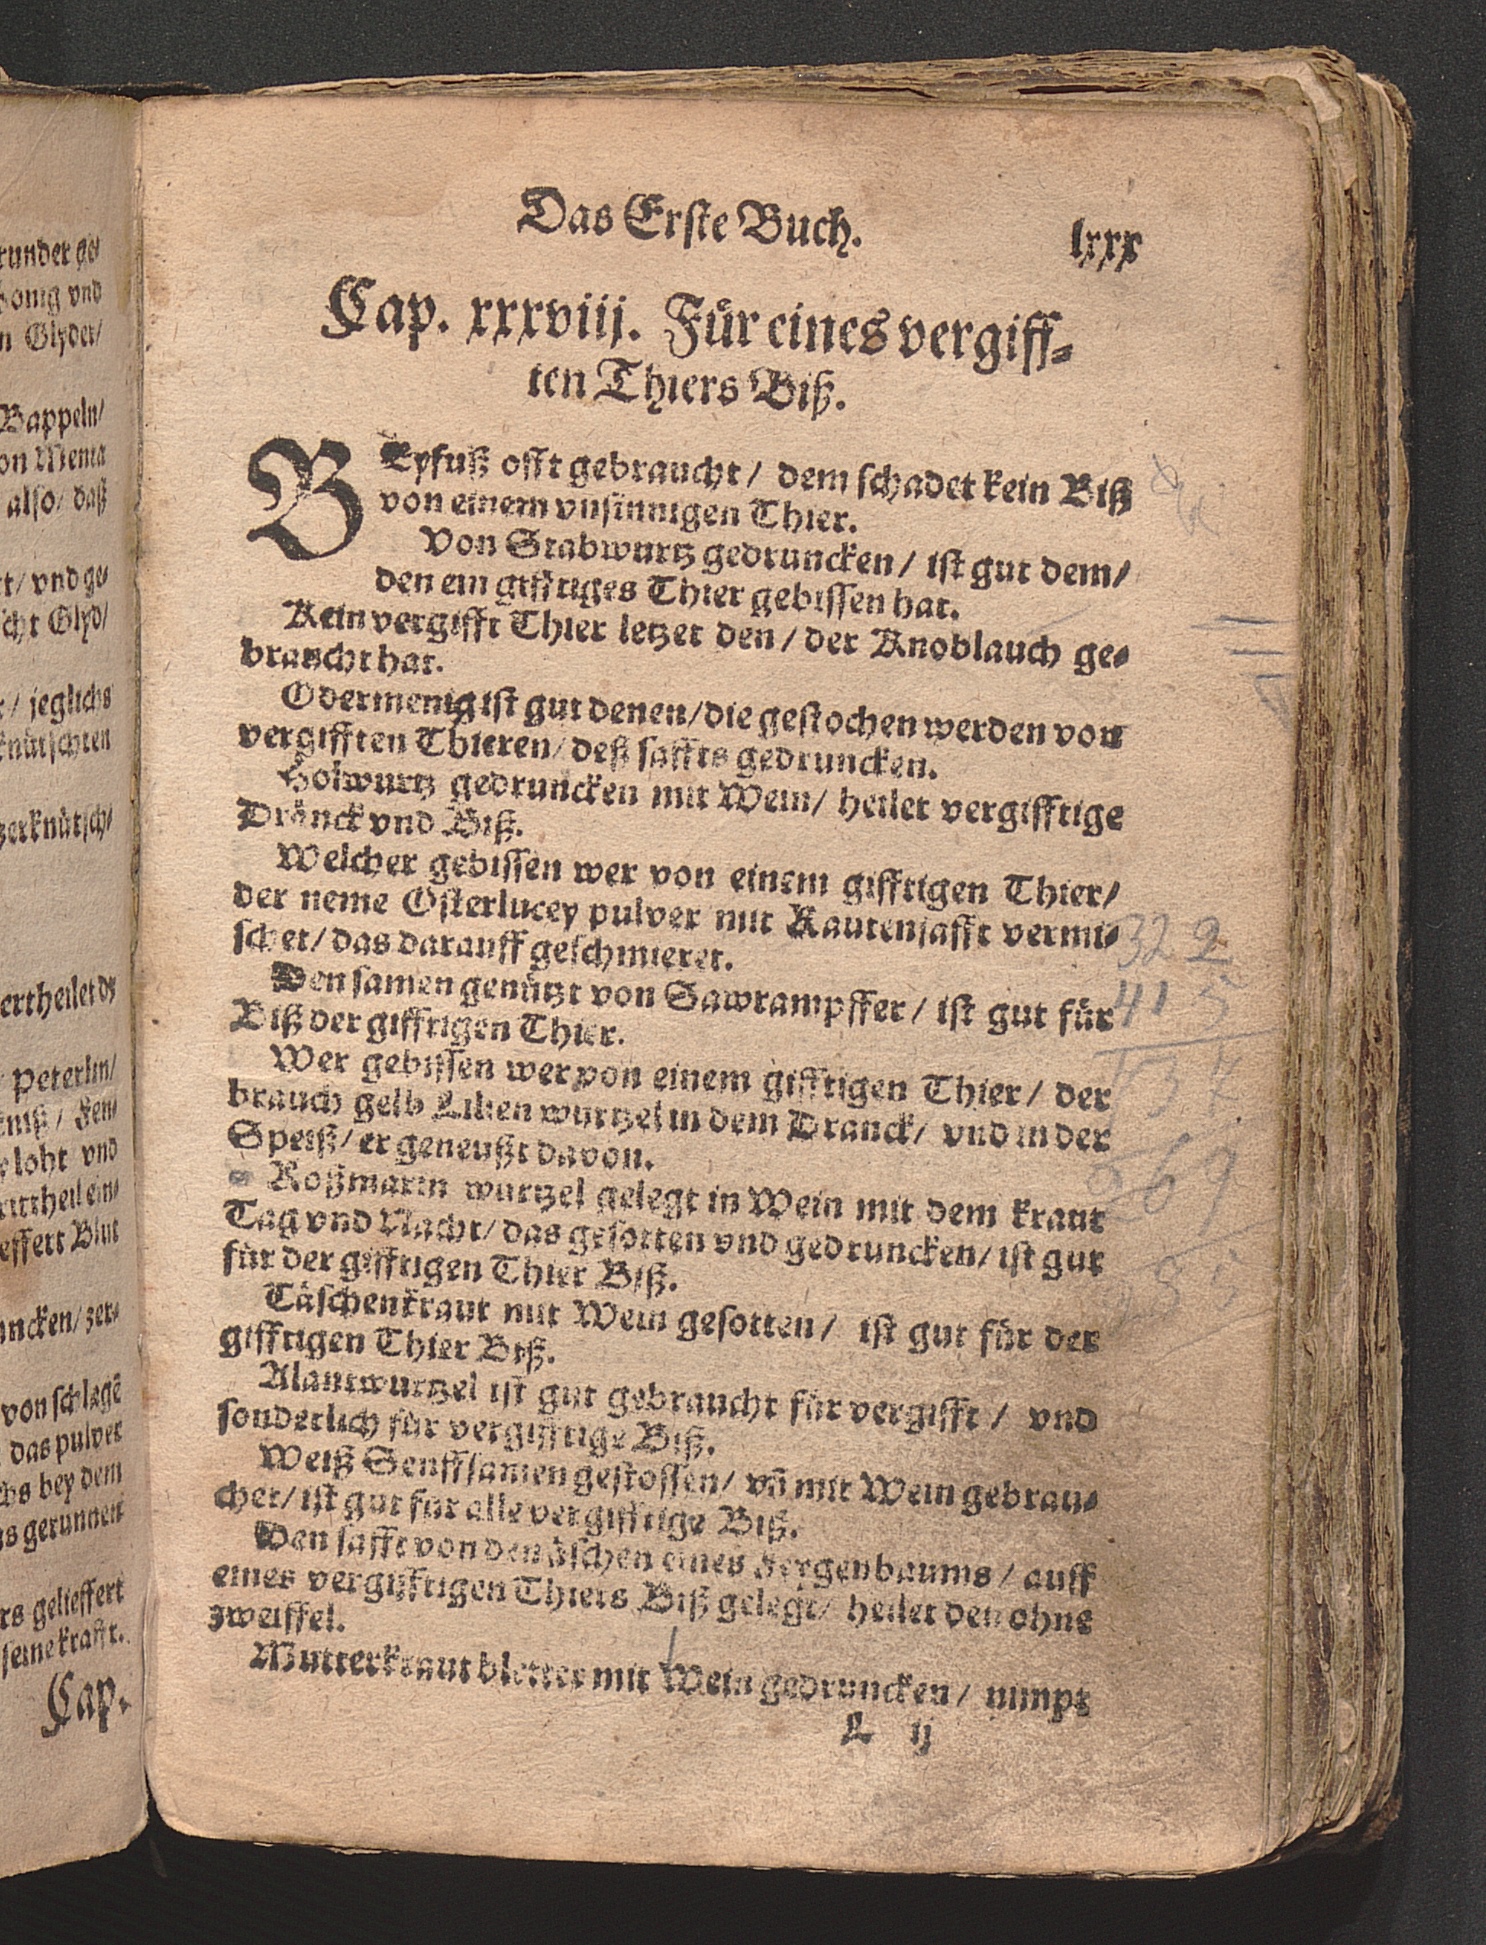 runder ge⸗
honig vnd
n Glyder/
Bappeln/
on Menta
also/ daß
rt/ vnd ge⸗
cht Glyd/
r/ jeglichs
knütschten
zerknütsch/
ertheilet dz
Peterlin/
Fen⸗
loht vnd
rittheil ein⸗
effert Blut
uncken/ zer⸗
von schlegē
das pulver
chs bey dem
gs gerunnen
rs gelieffert
seine krafft.
Cap.
Das Erste Buch. lxxx
Cap. xxxviij. Für eines vergiff⸗
ten Thiers Biß.
BEyfuß offt gebraucht / dem schadet kein Biß
von einem vnsinnigen Thier.
Von Stabwurtz gedruncken / ist gut dem/
den ein gifftiges Thier gebissen hat.
Kein vergifft Thier letzet den / der Knoblauch ge⸗
braucht hat.
Odermenig ist gut denen/die gestochen werden von
vergifften Thieren/ deß saffts gedruncken.
Holwurtz gedruncken mit Wein/ heilet vergifftige
Dränck vnd Biß.
Welcher gebissen wer von einem gifftigen Thier/
der neme Osterlucey pulver mit Rautensafft vermi⸗
schet/das darauff geschmieret.
Den samen genützt von Sawrampffer / ist gut für
Biß der gifftigen Thier.
Wer gebissen wer von einem gifftigen Thier / der
brauch gelb Lilien wurtzel in dem Dranck/ vnd in der
Speiß/ er geneußt davon.
Roßmarin wurtzel gelegt in Wein mit dem kraut
Tag vnd Nacht/ das gesotten vnd gedruncken/ ist gut
für der gifftigen Thier Biß.
Täschenkraut mit Wein gesotten / ist gut für der
gifftigen Thier Biß.
Alantwurtzel ist gut gebraucht für vergifft / vnd
sonderlich für vergifftige Biß.
Weiß Senffsamen gestossen/ vñ mit Wein gebrau⸗
chet/ ist gut für alle vergifftige Biß.
Den safft von den äschen eines Feygenbaums / auff
eines vergifftigen Thiers Biß gelegt/ heilet den ohne
zweiffel.
Mutterkraut bletter mit Wein gedruncken / nimpt
L ij
322
415